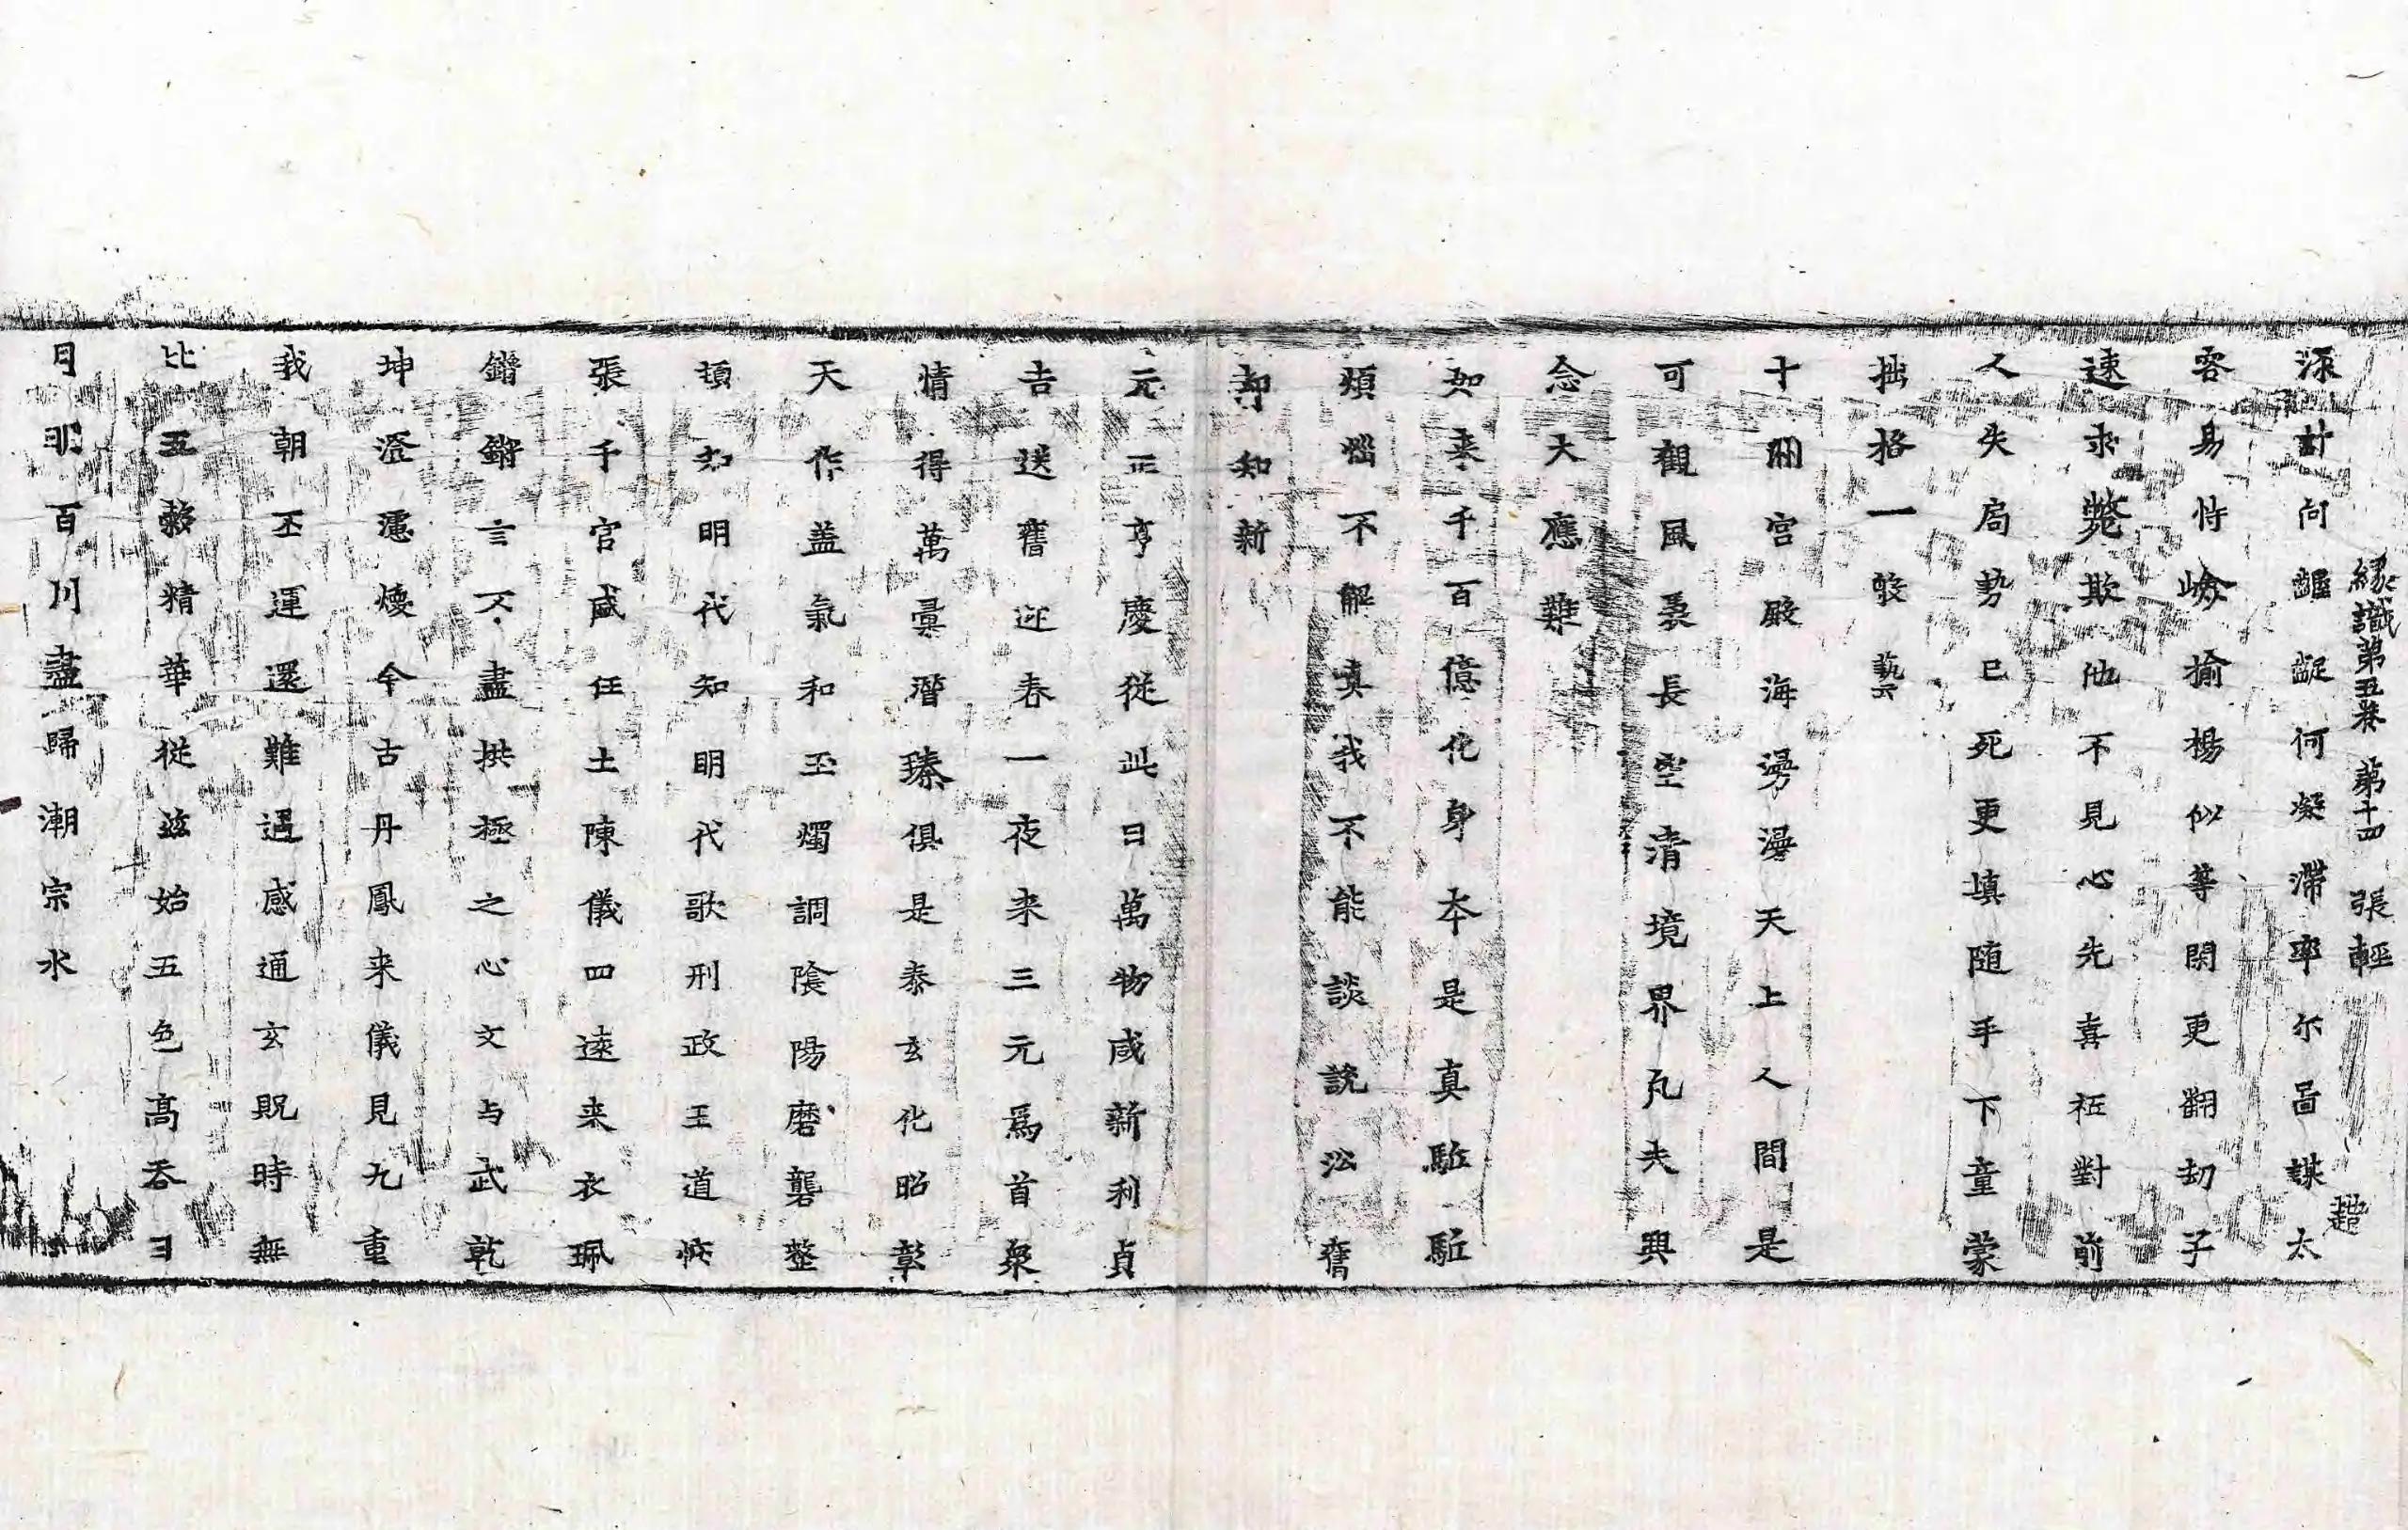 緣識第五卷 第十四 張 輕
趙
深計向齷齪何凝滯率尓啚謀太
容易恃嶮揄楊似等閑更翻劫子
速求斃欺他不見心先喜枉對前
人失局勢已死更填随手下童蒙
拙格一骰藝六
十洲宮殿海漫漫天上人間是
可觀風裊長空清境界凢夫興
念大應難
如来千百億化身夲是真駈駈
煩惱不解真我不能談說訟舊
却知新
元正亨慶從此日萬物咸新利貞
吉送舊迎春一夜来三元爲首衆
情得萬彙潛臻俱是泰玄化昭彰
天作盖氣和玉燭調隂陽磨礱整
頓如明代知明代歌刑政王道恢
張千官咸任土陳儀四遠来衣珮
鏘鏘言不盡拱極之心文与武乾
坤澄濾燠今古丹鳳来儀見九重
我朝丕運還難遇感通玄貺時無
比五穀精華從兹始五色高吞日
月明百川盡歸潮宗水